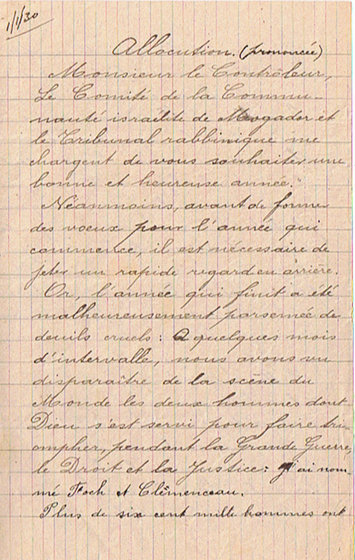 1/1/30
Allocution. (prononcée)
Monsieur le Contrôleur,
Le Comité de la Commu-
nauté israélite de Mogador et
le Tribunal rabbinique me
chargent de vous souhaiter une
bonne et heureuse année.
Néanmoins, avant de former
des voeux pour l'année qui
commence, il est nécessaire de
jeter un rapide regard en arrière.
Or, l'année qui finit a été
malheureusement parsemée de
deuils cruels: A quelques mois
d'intervalle, nous avons vu
disparaître de la scène du
Monde les deux hommes dont
Dieu s'est servi pour faire tri-
ompher, pendant la Grande Guerre,
le Droit et la Justice: J'ai nom-
mé Foch et Clémenceau.
Plus de six cent mille hommes ont